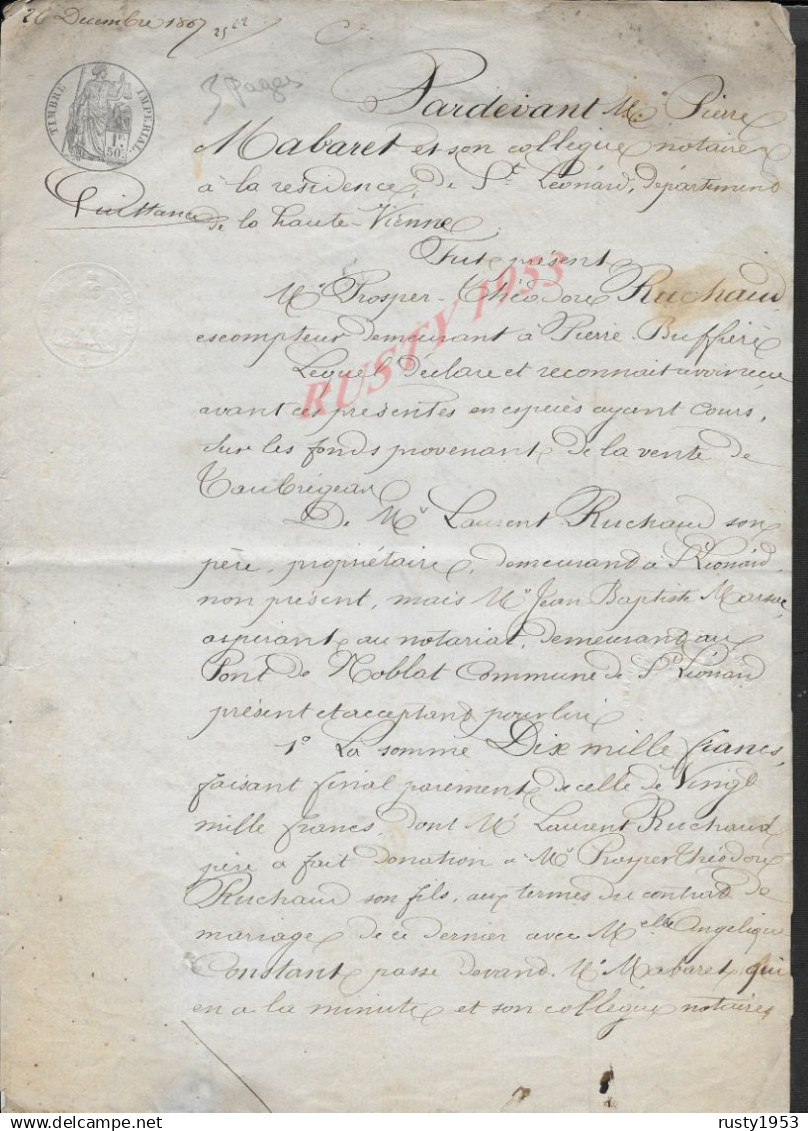 26 Decembre 1867
3 pages
TIMBRE IMPERIAL
1F 50C
Quittance
Pardevant Me Pierre
Mabaret et son collègue notaires
à la résidence, de St Léonard, département
de la haute-Vienne
Fut présent
Mr Prosper-Théodore Ruchaud
escompteur demeurant à Pierre-Buffière
Lequel déclare et reconnait avoir reçu
avant ces présentes en espèces ayant cours,
sur les fonds provenant de la vente de
Taubrégeas
De Mr Laurent Ruchaud son
père, propriétaire, demeurant à St Léonard,
non présent, mais Mr Jean Baptiste Marsac
aspirant au notariat, demeurant au
Pont de Noblat Commune de St Léonard
présent et acceptant pour lui
1o La somme Dix mille francs,
faisant final paiement de celle de Vingt
mille francs, dont Mr Laurent Ruchaud
père a fait donation à Mr Prosper Théodore
Ruchaud son fils, aux termes du contrat de
mariage de ce dernier avec Melle Angélique
Constant passé devant Me Mabaret qui
en a la minute et son collègue notaires
RUSTY 1953
rusty1953